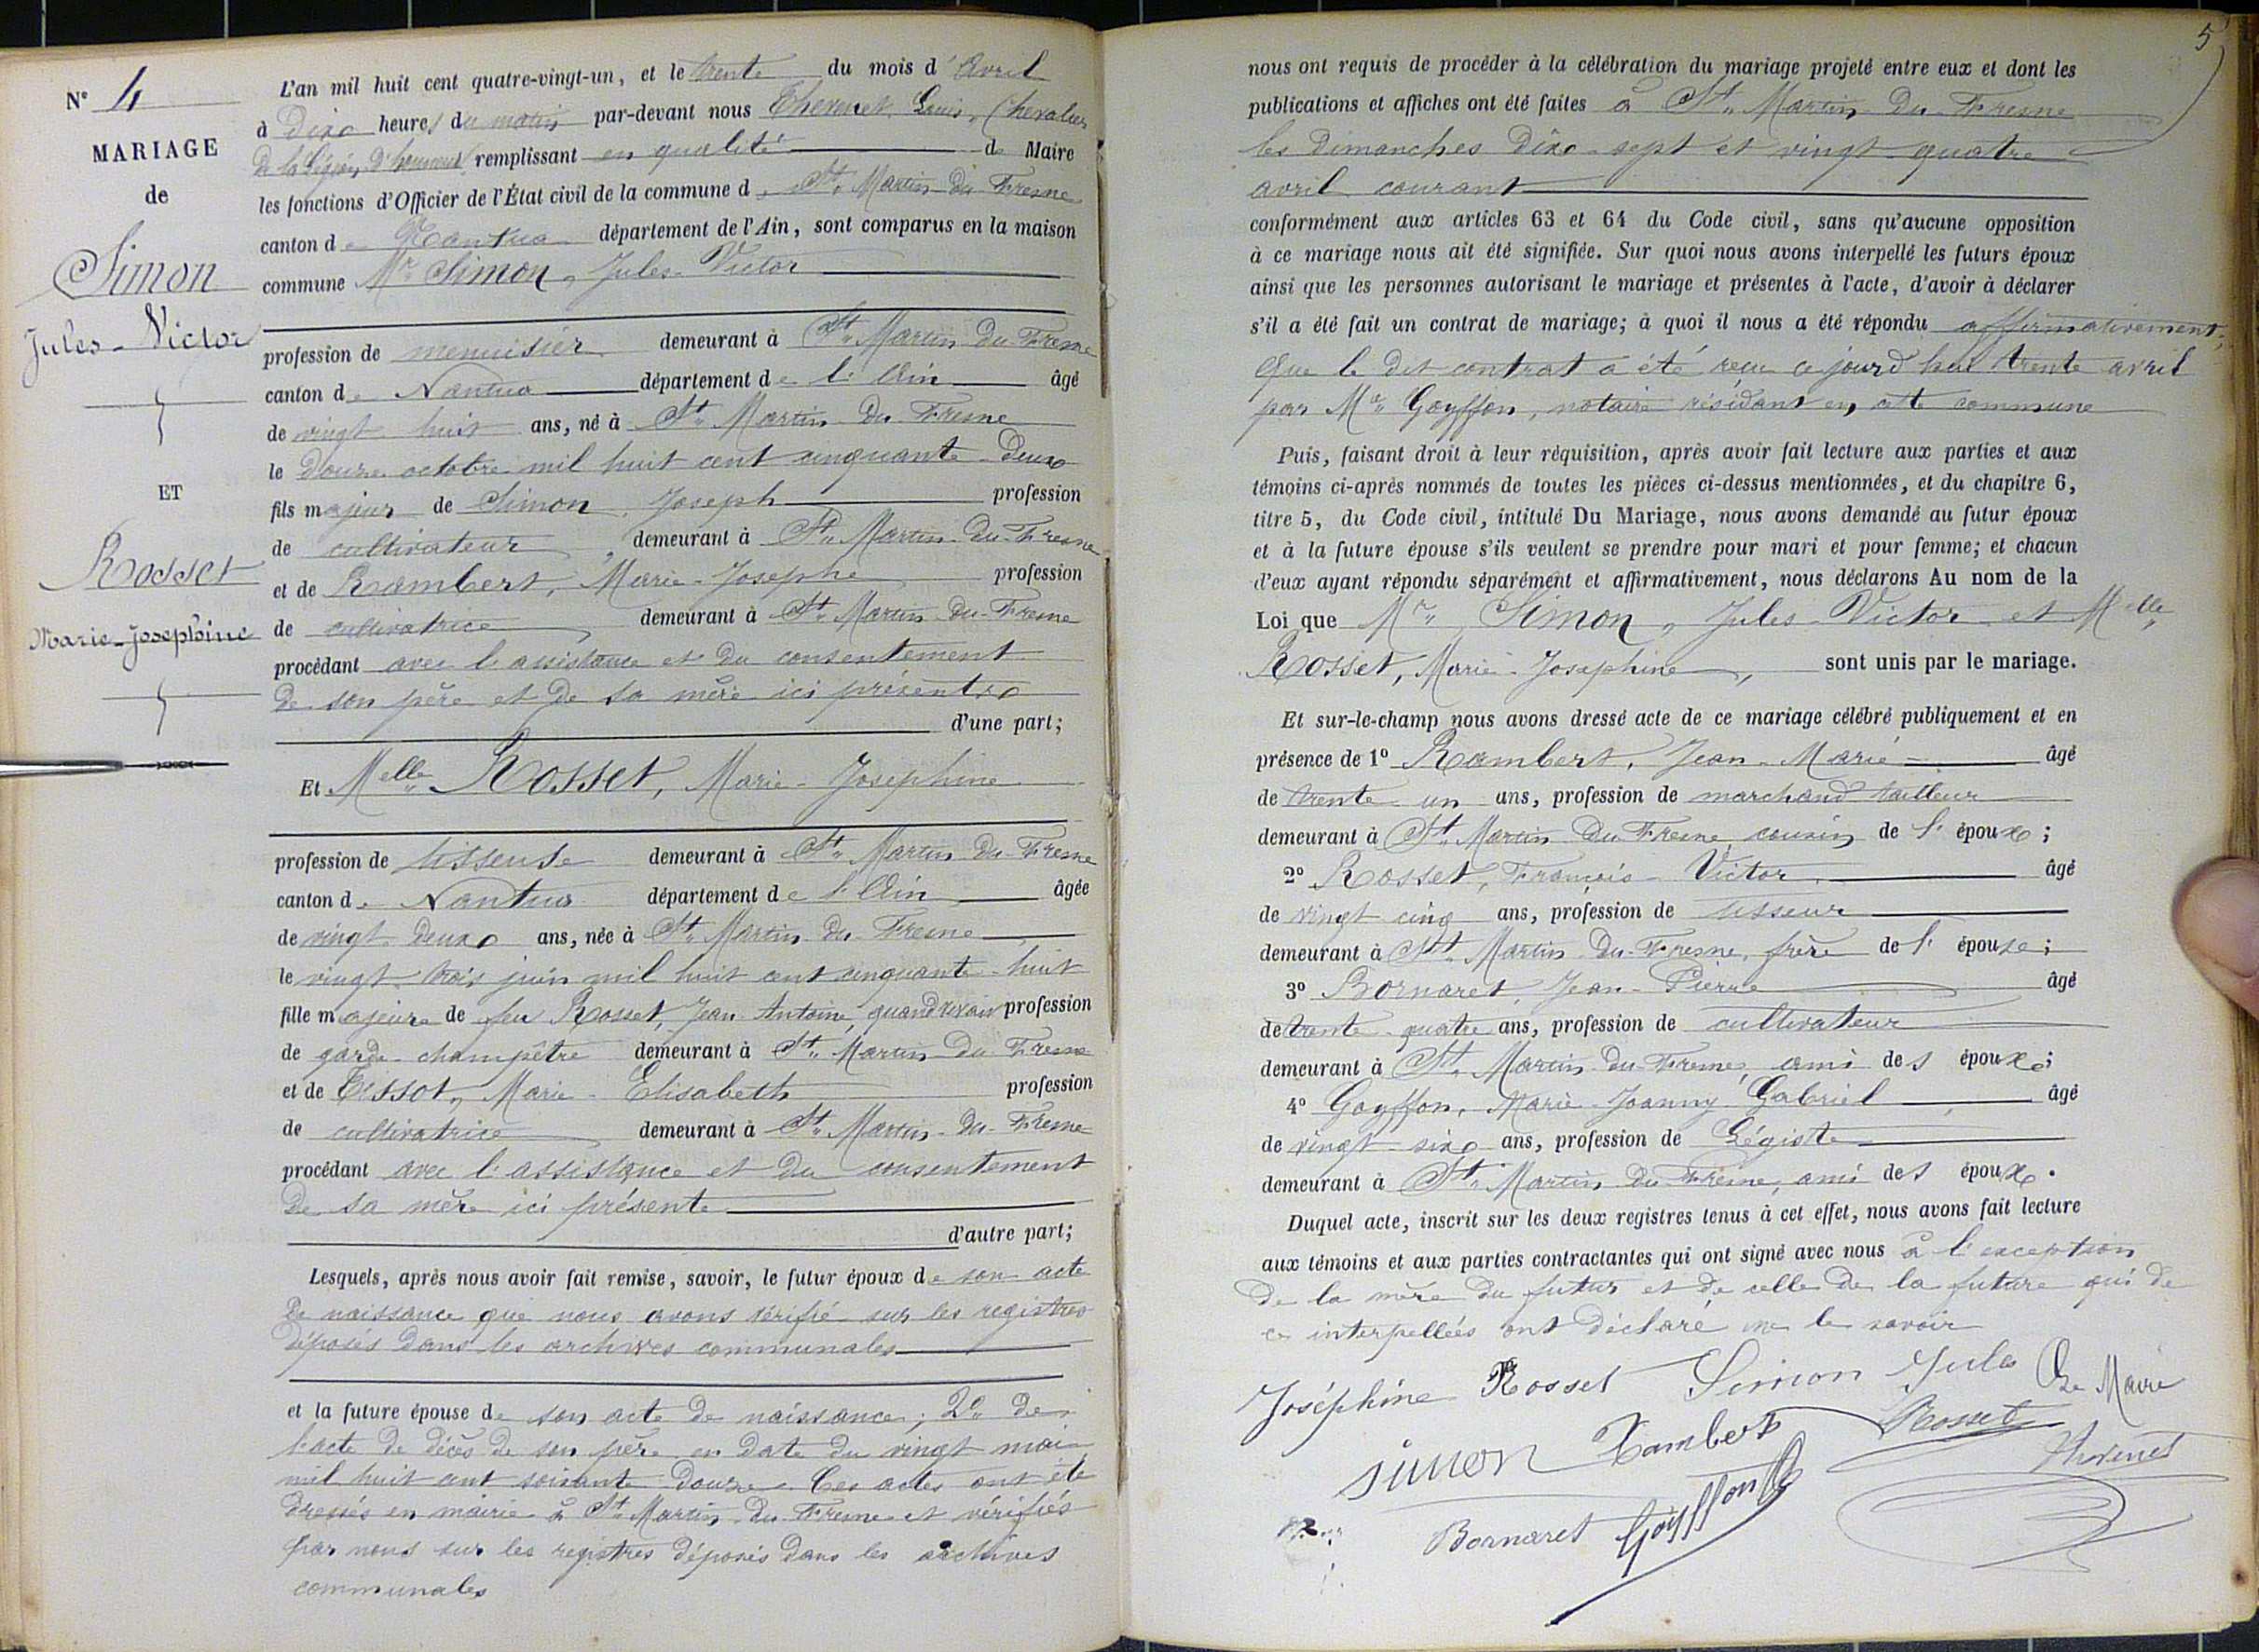 N° 4
MARIAGE
de
Simon
Jules-Victor
ET
Rosset
Marie-Josephine
L'an mil huit cent quatre-vingt-un, et le trente du mois d'Avril
à Dix heures du matin par-devant nous Thevenet, Louis, Chevalier
De la Légion D'honneur remplissant en qualité de Maire
les fonctions d'Officier de l'État civil de la commune de St. Martin-du-Fresne
canton de Nantua département de l'Ain, sont comparus en la maison
commune Mr. Simon, Jules-Victor
profession de menuisier demeurant à St. Martin-du-Fresne
canton de Nantua département de l'Ain âgé
de vingt-huit ans, né à St. Martin-du-Fresne
le Douze octobre mil huit cent cinquante-Deux
fils majeur de Simon, Joseph profession
de cultivateur, demeurant à St. Martin-du-Fresne
et de Rambert, Marie-Josephe profession
de cultivatrice demeurant à St. Martin-du-Fresne
procédant avec l'assistance et du consentement
De son père et de sa mère ici présents
d'une part;
Et Melle Rosset, Marie-Josephine
profession de tisseuse demeurant à St. Martin-du-Fresne
canton de Nantua département de l'Ain âgée
de vingt-Deux ans, née à St. Martin-du-Fresne
le vingt-trois juin mil huit cent cinquante-huit
fille majeure de feu Rosset, Jean-Antoine, quand vivait profession
de garde-champêtre demeurant à St. Martin-Du-Fresne
et de Tissot, Marie-Elisabeth profession
de cultivatrice demeurant à St. Martin-du-Fresne
procédant avec l'assistance et du consentement
De sa mère ici présente
d'autre part;
Lesquels, après nous avoir fait remise, savoir, le futur époux de son acte
De naissance que nous avons vérifié sur les registres
déposés dans les archives communales
et la future épouse de son acte de naissance; 2° De
l'acte De décès de son père en date du vingt mai
mil huit cent soixante-Douze. Ces actes ont été
dressés en mairie à St. Martin-Du-Fresne et vérifiés
par nous sur les registres déposés dans les archives
communales
5
nous ont requis de procéder à la célébration du mariage projeté entre eux et dont les
publications et affiches ont été faites à St. Martin-Du-Fresne
les Dimanches Dix-sept et vingt-quatre
avril courant
conformément aux articles 63 et 64 du Code civil, sans qu'aucune opposition
à ce mariage nous ait été signifiée. Sur quoi nous avons interpellé les futurs époux
ainsi que les personnes autorisant le mariage et présentes à l'acte, d'avoir à déclarer
s'il a été fait un contrat de mariage; à quoi il nous a été répondu affirmativement,
Que le dit contrat a été reçu ce jourd'hui trente avril
par Me Goyffon, notaire résidant en cette commune
Puis, faisant droit à leur réquisition, après avoir fait lecture aux parties et aux
témoins ci-après nommés de toutes les pièces ci-dessus mentionnées, et du chapitre 6,
titre 5, du Code civil, intitulé Du Mariage, nous avons demandé au futur époux
et à la future épouse s'ils veulent se prendre pour mari et pour femme; et chacun
d'eux ayant répondu séparément et affirmativement, nous déclarons Au nom de la
Loi que Mr. Simon, Jules-Victor et Melle
Rosset, Marie-Josephine, sont unis par le mariage.
Et sur-le-champ nous avons dressé acte de ce mariage célébré publiquement et en
présence de 1° Rambert, Jean-Marie âgé
de trente-un ans, profession de marchand tailleur
demeurant à St. Martin-Du-Fresne, cousin de l'époux;
2° Rosset, François-Victor âgé
de vingt-cinq ans, profession de tisseur
demeurant à St. Martin-Du-Fresne, frère de l'épouse;
3° Bornaret, Jean-Pierre âgé
de trente-quatre ans, profession de cultivateur
demeurant à St. Martin-du-Fresne, ami des époux;
4° Goyffon, Marie-Joanny-Gabriel âgé
de vingt-six ans, profession de Légiste
demeurant à St. Martin-Du-Fresne, ami des époux.
Duquel acte, inscrit sur les deux registres tenus à cet effet, nous avons fait lecture
aux témoins et aux parties contractantes qui ont signé avec nous à l'exception
De la mère du futur et de celle De la future qui de
ce interpellées ont déclaré ne le savoir
Joséphine Rosset Simon Jules Le Maire
Simon Rambert Rosset Thevenet
Bornaret Goÿffon